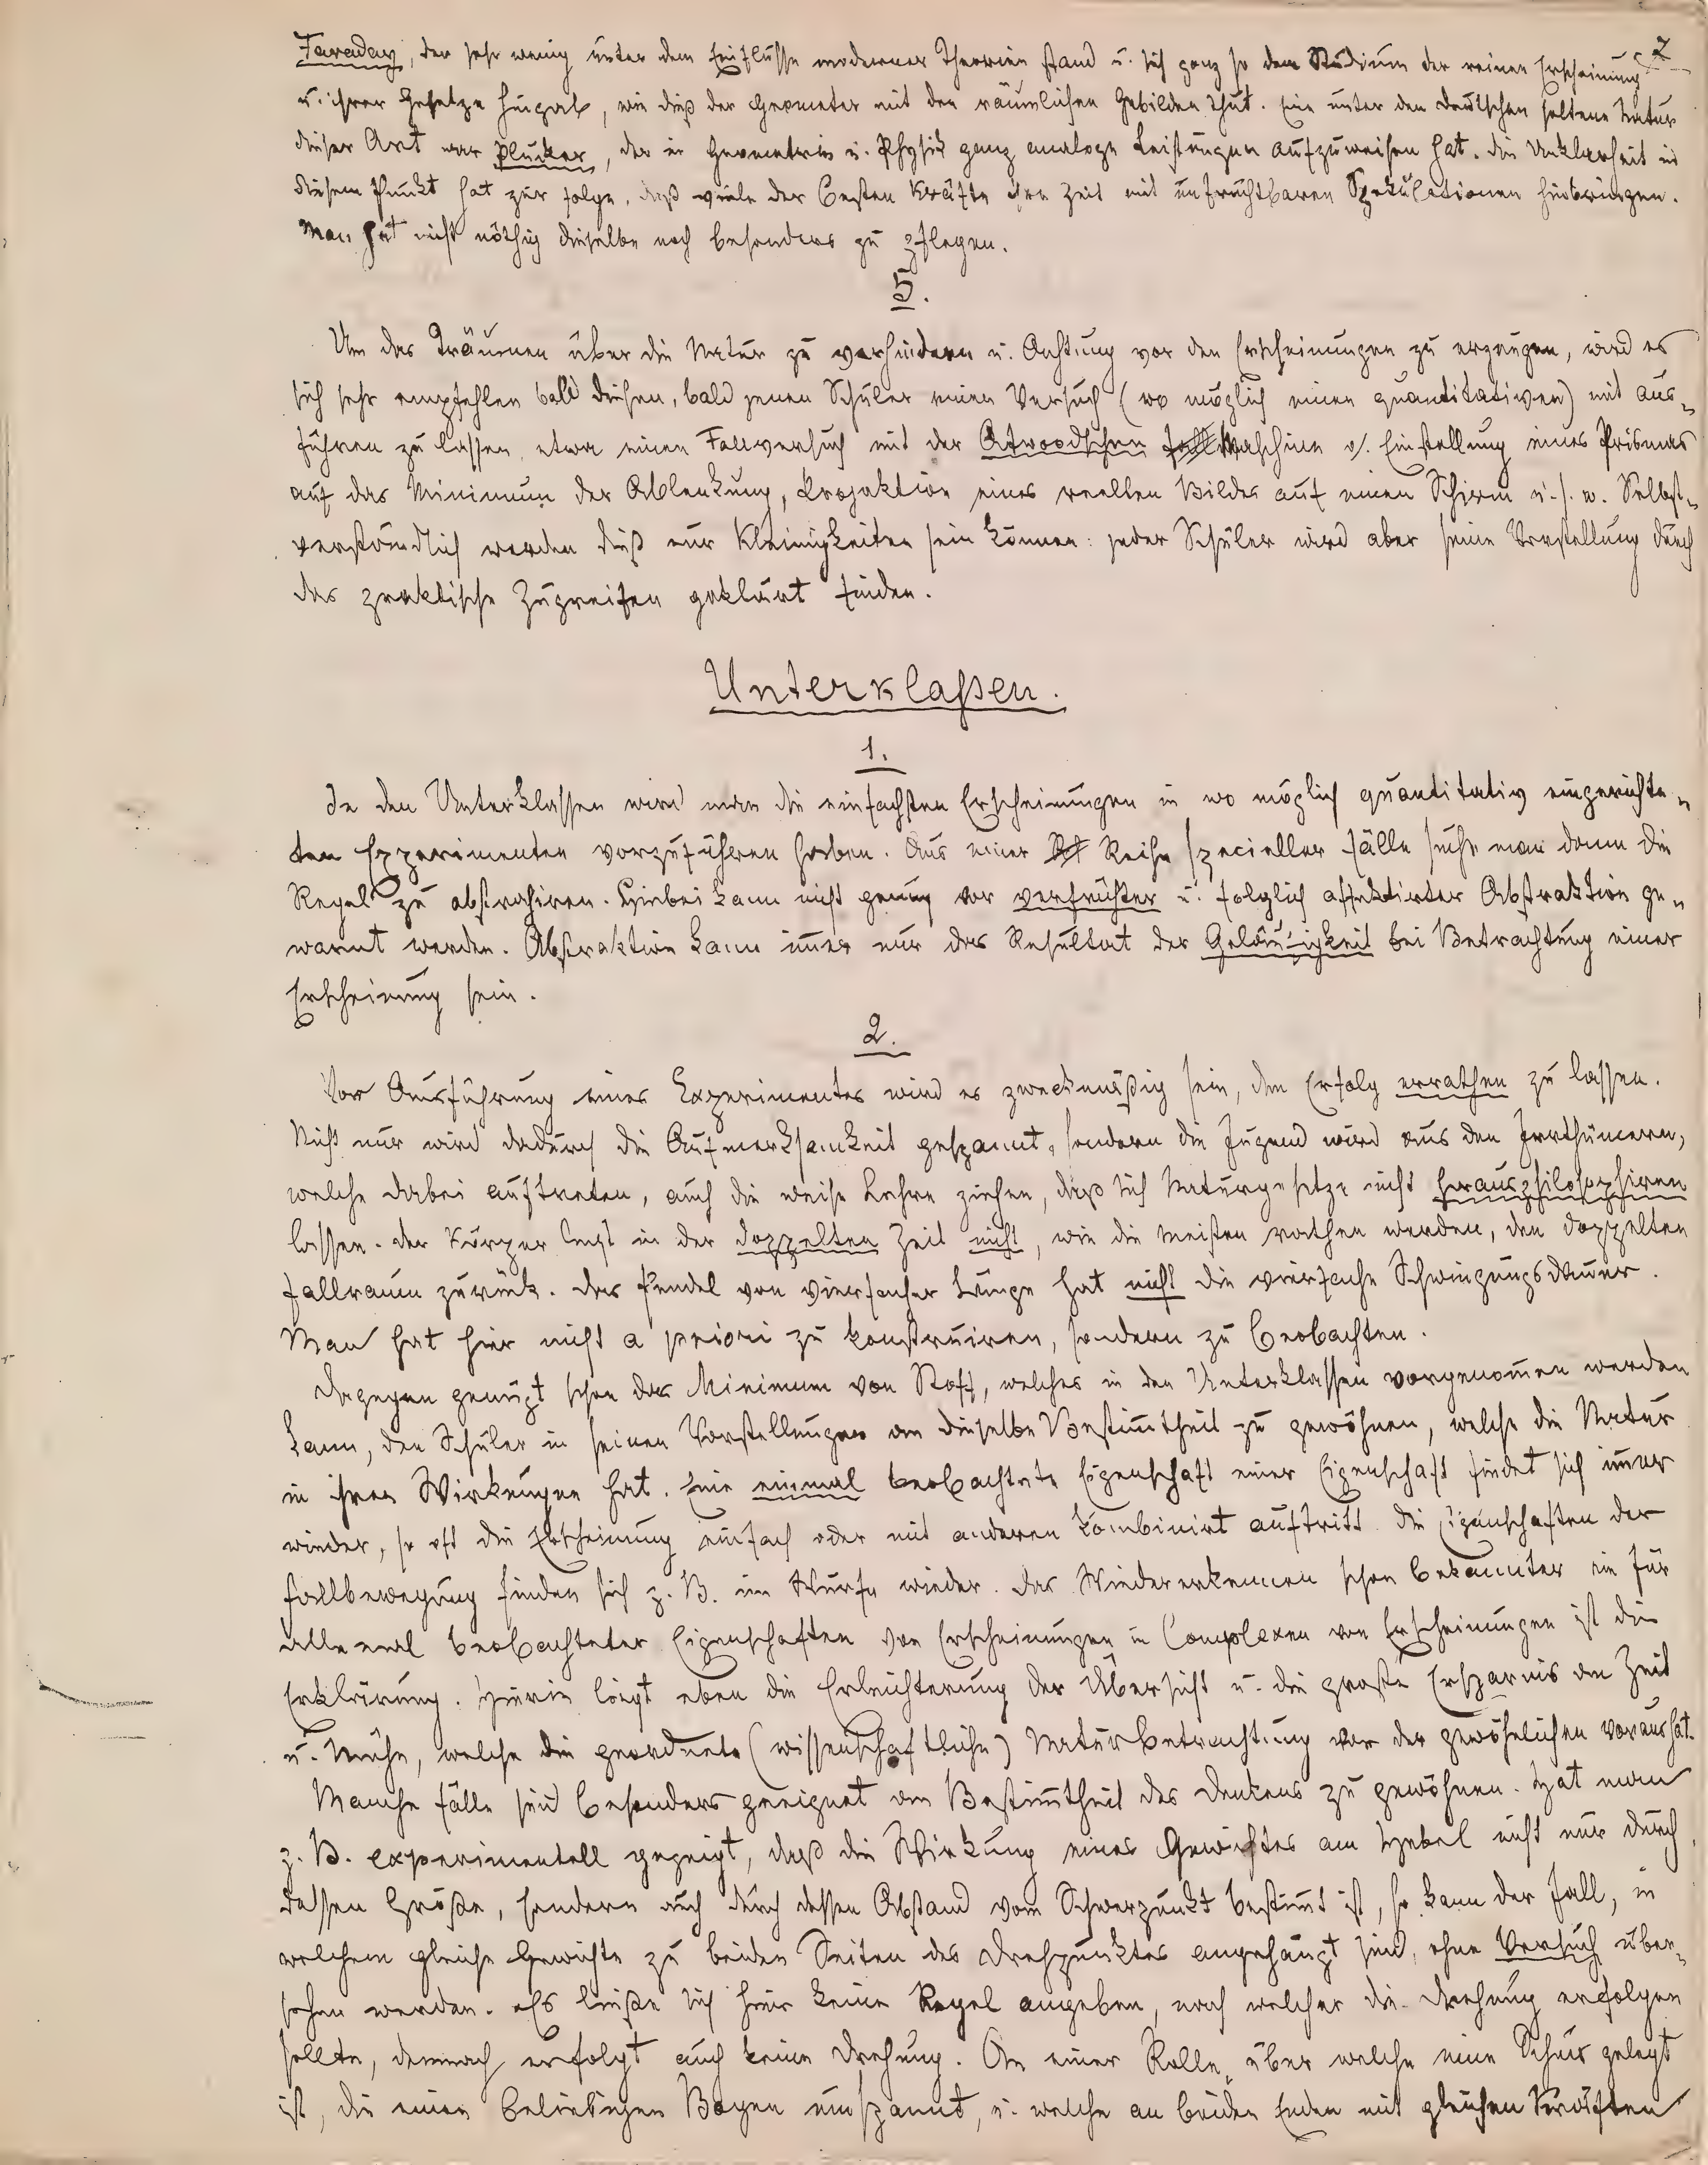 7
Faraday, der sehr wenig unter dem Einflusse moderner Theorien stand u. sich ganz so dem Studium der reinen Erscheinung
u. ihrer Gesetze hingab, wie dieß der Geometer mit den räumlichen Gebilden thut. Eine unter den Deutschen seltene Natur
dieser Art war Plücker, der in Geometrie u. Physik ganz analoge Leistungen aufzuweisen hat. Die Unklarheit in
diesem Punkt hat zur Folge, daß viele der besten Kräfte ihre Zeit mit unfruchtbaren Spekulationen hinbringen.
Man hat nicht nöthig dieselbe noch besonders zu pflegen.
5.
Um das Träumen über die Natur zu verhindern u. Achtung vor den Erscheinungen zu erzeugen, wird es
sich sehr empfehlen bald diesen, bald jenen Schüler einen Versuch (wo möglich einen quantitativen) mit aus-
führen zu lassen, etwa einen Fallversuch mit der Atwoodschen Maschine o. Einstellung eines Prismas
auf das Minimum der Ablenkung, Projektion eines reellen Bildes auf einen Schirm u. s. w. Selbst-
verständlich werden dieß nur Kleinigkeiten sein können: jeder Schüler wird aber seine Vorstellung durch
das praktische Zugreifen geklärt finden.
Unterklaßen.
1.
In den Unterklassen wird man die einfachsten Erscheinungen in wo möglich quantitativ eingerichte-
ten Experimenten vorzuführen haben. Aus einer Reihe specieller Fälle suche man dann die
Regel zu abstrahiren. Hiebei kann nicht genug vor verfrühter u. folglich affektirter Abstraktion ge-
warnt werden. Abstraktion kann im̄er nur das Resultat der Geläufigkeit bei Betrachtung einer
Erscheinung sein.
2.
Vor Ausführung eines Experimentes wird es zweckmäßig sein, den Erfolg errathen zu lassen.
Nicht nur wird dadurch die Aufmerksamkeit gespannt, sondern die Jugend wird aus den Irrthümern,
welche dabei auftreten, auch die weise Lehre ziehen, daß sich Naturgesetze nicht herausphilosophiren
lassen. Der Körper legt in der doppelten Zeit nicht, wie die meisten rathen werden, den doppelten
Fallraum zurück. Das Pendel von vierfacher Länge hat nicht die vierfache Schwingungsdauer.
Man hat hier nicht a priori zu konstruiren, sondern zu beobachten.
Dagegen genügt schon das Minimum von Stoff, welches in den Unterklassen vorgenom̄en werden
kann, den Schüler in seinen Vorstellungen an dieselbe Bestim̄theit zu gewöhnen, welche die Natur
in ihren Wirkungen hat. Eine einmal beobachtete Eigenschaft einer Eigenschaft findet sich im̄er
wieder, so oft die Erscheinung einfach oder mit anderen kombinirt auftritt. Die Eigenschaften der
Fallbewegung finden sich z. B. im Wurfe wieder. Das Wiedererkennen schon bekannter ein für
alle mal beobachteter Eigenschaften von Erscheinungen in Complexen von Erscheinungen ist die
Erklärung. Hierin liegt eben die Erleichterung der Übersicht u. die große Ersparnis an Zeit
u. Mühe, welche die geordnete (wissenschaftliche) Naturbetrachtung vor der gewöhnlichen voraus hat.
Manche Fälle sind besonders geeignet an Bestim̄theit des Denkens zu gewöhnen. Hat man
z. B. experimentell gezeigt, daß die Wirkung eines Gewichtes am Hebel nicht nur durch
dessen Größe, sondern auch durch dessen Abstand vom Schwerpunkt bestim̄t ist, so kann der Fall, in
welchem gleiche Gewichte zu beiden Seiten des Drehpunktes angehängt sind, ohne Versuch über-
sehen werden. Es ließe sich hier keine Regel angeben, nach welcher die Drehung erfolgen
sollte, demnach erfolgt auch keine Drehung. An einer Rolle, über welche eine Schnur gelegt
ist, die einen beliebigen Bogen umspannt, u. welche an beiden Enden mit gleichen Kräften